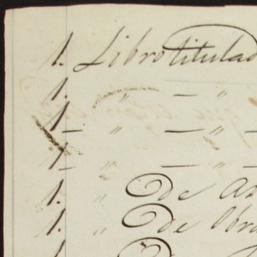 1. Libro titulado
1. " — "
1 " — "
1 " — "
1. " De
1. " De
1. " De